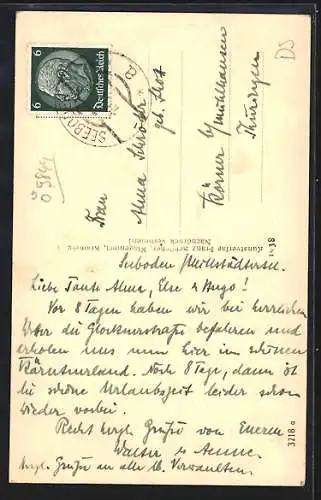 6 Deutsches Reich 6
SEEBODEN
a
DS
Frau
Alma Schröder
geb. Thon
Körner b/Mühlhausen
Thüringen
Kunstverlag Franz Schilcher, Klagenfurt,
Nachdruck verboten!
1938
Seeboden Millstättersee.
Liebe Tante Alma, Else & Hugo!
Vor 8 Tagen haben wir bei herrlichem
Wetter die Glocknerstraße befahren und
erholen uns nun hier im schönen
Kärntnerland. Noch 8 Tage, dann ist
die schöne Urlaubszeit leider schon
wieder vorbei.
Recht herzl. Grüße von Eueren
Walter & Anne.
Herzl. Grüße an alle lb. Verwandten.
3218 a